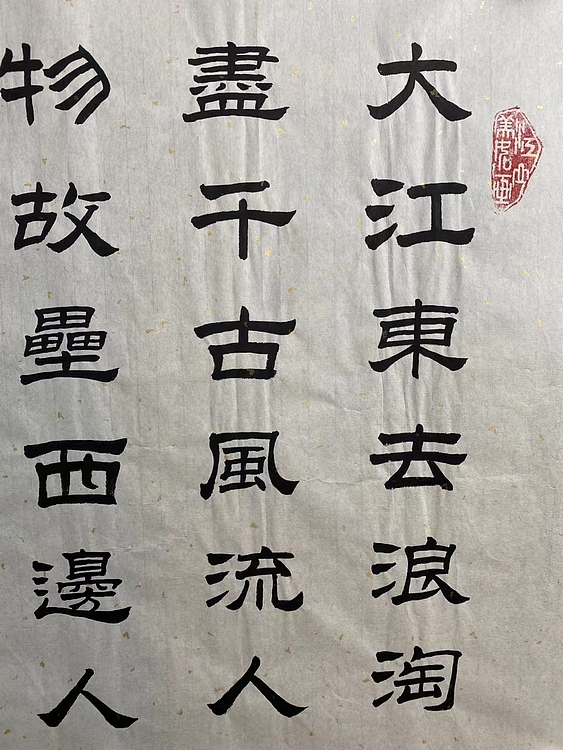 大江東去浪淘
盡千古風流人
物故壘西邊人